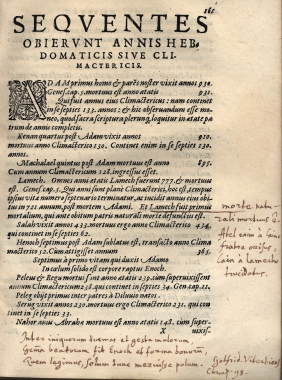 161
SEQVENTES
OBIERVNT ANNIS HEB-
DOMATICIS SIVE CLI-
MACTERICIS.
ADAM primus homo & parēs noster vixit annos 930.
Genes. cap. 5. mortuus est anno ætatis 931.
Qui fuit annus eius Climactericus: nam continet
in se septies 133. annos: & hic obseruandum esse mo-
neo, quod sacra scriptura plerunq́, loquitur in ætate pa
trum de annis completis.
Kenan quartus post Adam vixit annos 910.
mortuus anno Climacterico 130. Continet enim in se septies 130.
annos.
Machalael quintus post Adam mortuus est anno 895.
Cum annum Climactericum 128. ingressus esset.
Lamech. Omnes anni ætatis Lamech fuerunt 777. & mortuus
est. Genes. cap. 5. Qui anni sunt planè Climacterici, hoc est, tempus
ipsius vitæ numero septenario terminatur, ac incidit annus eius obi-
tus in 721. annum, post mortem Adami. Atq́, Lamech fuit primus
mortalium, qui ante obitum patris naturali morte defunctus est.
Salah vixit annos 433. mortuus ergo anno Climacterico 434.
qui continet in se septies 62.
Henoch septimus post Adam sublatus est, transacto anno Clima
cterico 52. Cum attigisset annum 365.
Septimus à primo vitam qui duxit Adamo
In cælum solido est corpore raptus Enoch.
Peleus & Regu mortui sunt anno ætatis 239. cùm superuixissent
annum Climactericum 238. qui continet in se septies 34. Gen. cap. 11.
Peleg obijt primus inter patres à Diluuio natos.
Serug vixit annos 230. mortuus ergo Climacterico 231. qui con-
tinet in se septies 33.
Nahor auus Abrahæ mortuus est anno ætatis 148. cum super-
X uixis-
morte natu-
rali mortuus
Abel eam à
fratre
Cain à Lamecho
Inter iniquorum
beatorum fit Enoch et forma bonorū,
Quem legimus, solum
Gotfrid. Viterbiens
98.